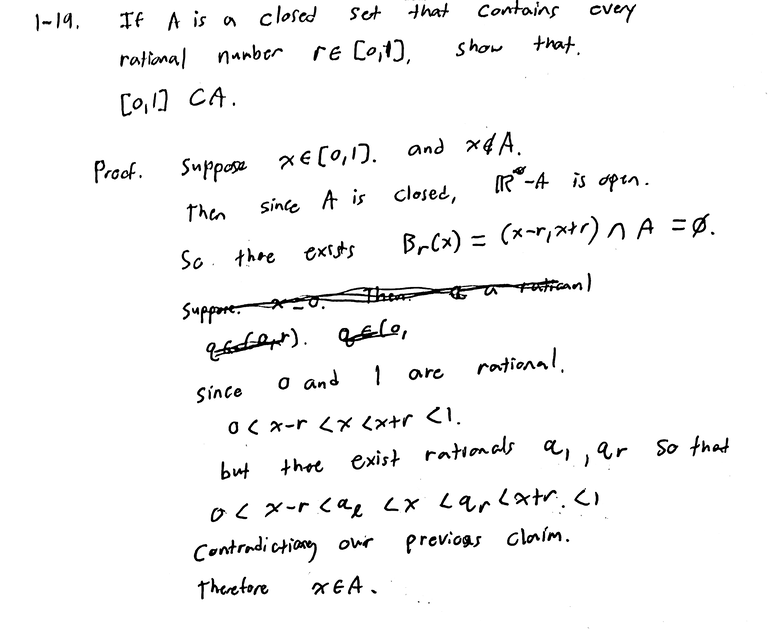 1-19. If A is a closed set that contains every
rational number r∈[0,1], show that.
[0,1] ⊂A.
Proof. Suppose x∈[0,1]. and x∉A.
Then since A is closed, ℝ-A is open.
So there exists Br(x) = (x-r,x+r) ∩ A = ∅.
Suppose. x=0. Then a rational
q∈(0,r). q∈[0,
since 0 and 1 are rational.
0 < x-r < x < x+r < 1.
but there exist rationals q₁, qr so that
0 < x-r < qℓ < x < qr < x+r. < 1
Contradicting our previous claim.
Therefore x∈A.